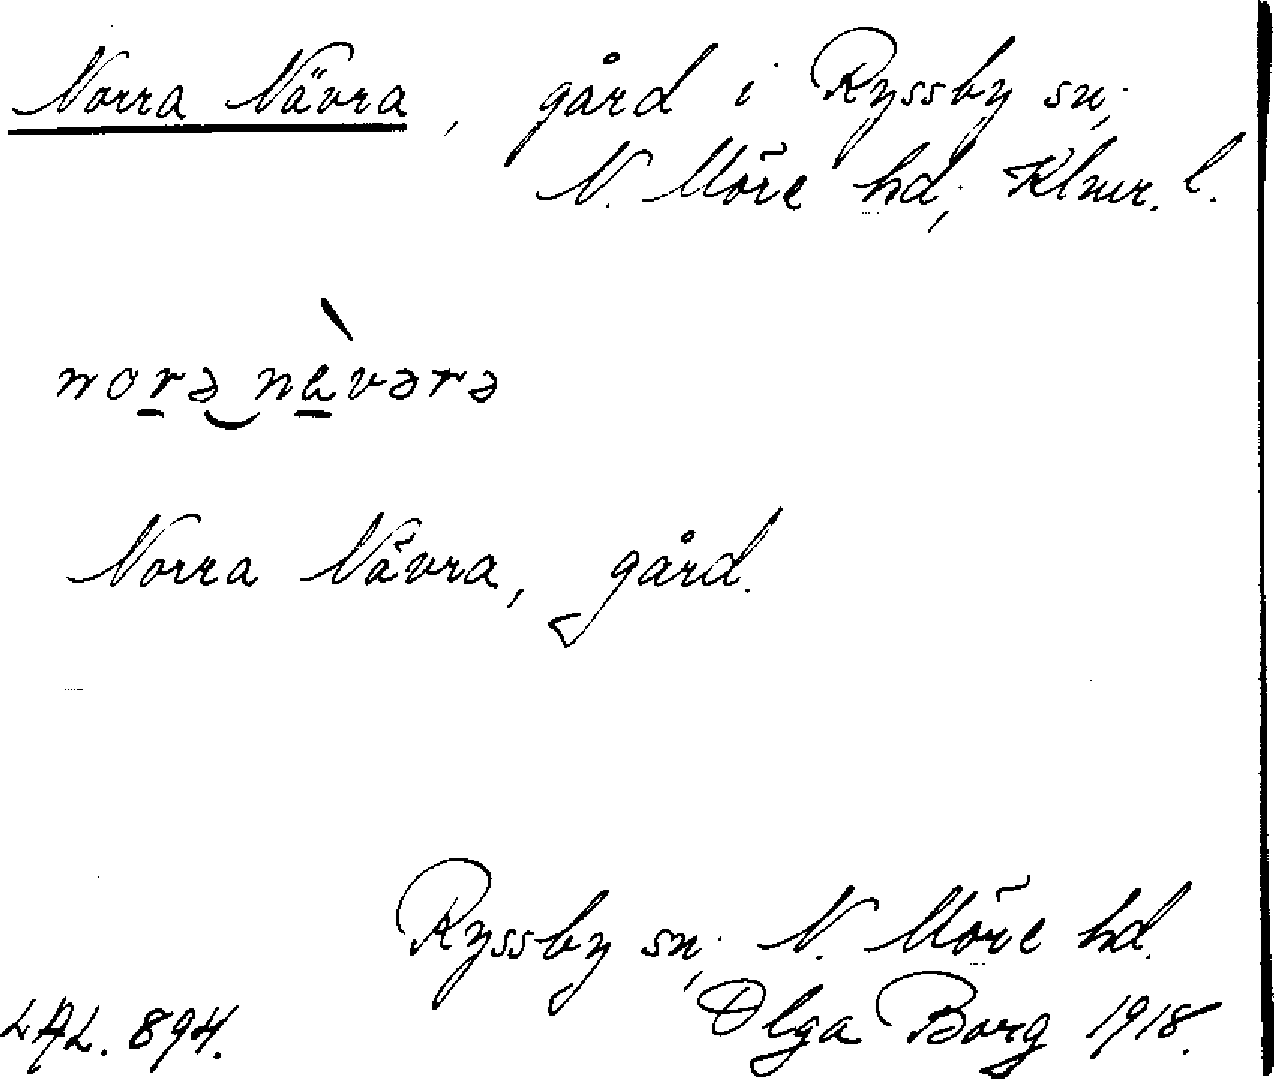 Norra Nävra, gård i Ryssby sn,
N. Möre hd, Klmr. l.
norə nàvərə
Norra Nävra, gård.
Ryssby sn, N. Möre hd.
LAL. 894. Olga Borg 1918.